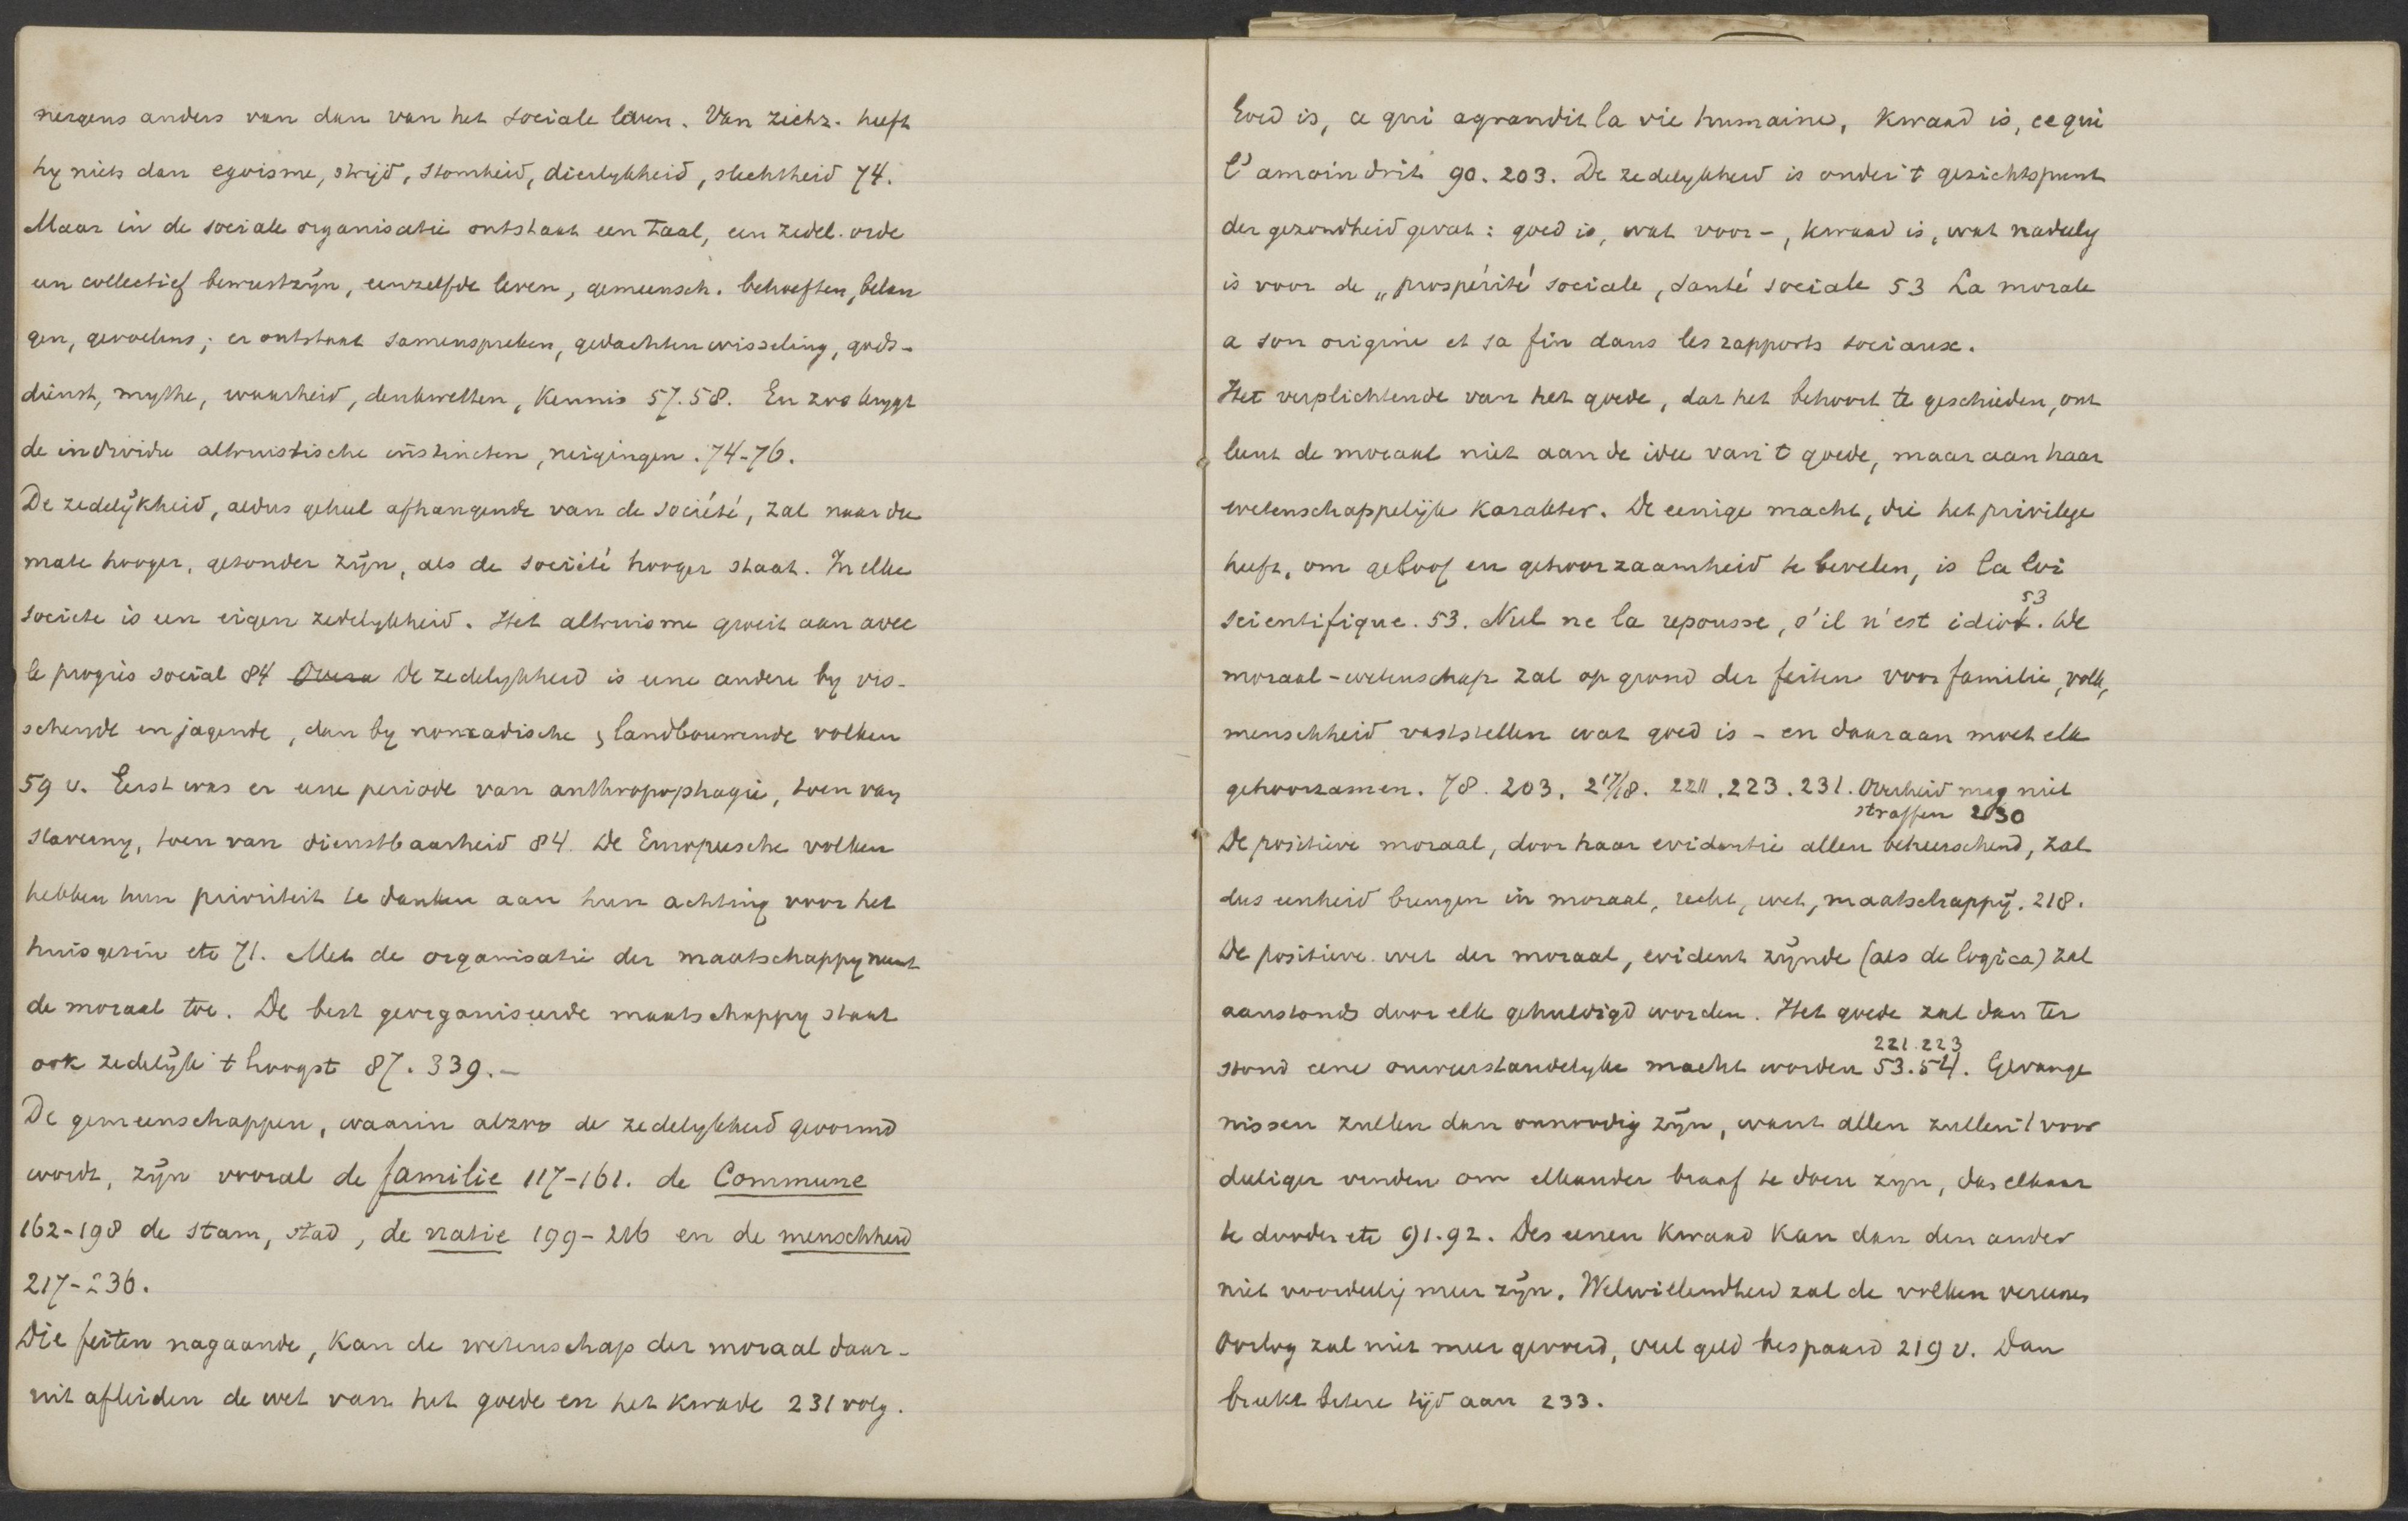 nergens anders van dan van het sociale leven. Van zichz. heeft
hy niets dan egoisme, strijd, stomheid, dierlykheid, slechtheid 74.
Maar in de sociale organisatie ontstaat een taal, een zedel. orde
een collectief bewustzijn, eenzelfde leven, gemeensch. behoeften, belan
gen, gevoelens; er ontstaat samenspreken, gedachtenwisseling, gods-
dienst, mythe, waarheid, denkwetten, kennis 57.58. En zoo krygt
de individu altruistische instincten, neigingen. 74-76.
De zedelijkheid, aldus geheel afhangende van de société, zal naar die
mate hooger, gezonder zijn, als de société hooger staat. In elke
societe is een eigen zedelykheid. Het altruisme groeit aan avec
le progrès social 84 De zedelykheid is eene andere by vis-
schende en jagende, dan by nomadische, landbouwende volken
59 v. Eerst was er eene periode van anthropophagie, toen van
slaverny, toen van dienstbaarheid 84. De Europeesche volken
hebben hun prioriteit te danken aan hun achting voor het
huisgezin etc 71. Met de organisatie der maatschappy neemt
de moraal toe. De best georganiseerde maatschappy staat
ook zedelijk 't hoogst 87. 339.-
De gemeenschappen, waarin alzoo de zedelykheid gevormd
wordt, zijn vooral de familie 117-161. de Commune
162-198 de stam, stad, de natie 199-216 en de menschheid
217-236.
Die feiten nagaande, kan de wetenschap der moraal daar-
uit afleiden de wet van het goede en het kwade 231 volg.
Goed is, ce qui agrandit la vie humaine, kwaad is, ce qui
l'amoindrit 90. 203. De zedelykheid is onder 't gezichtspunt
der gezondheid gevat: goed is, wat voor-, kwaad is, wat nadeelig
is voor de „prospérité sociale, santé sociale 53 La morale
a son origine et sa fin dans les rapports sociaux.
Het verplichtende van het goede, dat het behoort te geschieden, ont
leent de moraal niet aan de idee van 't goede, maar aan haar
wetenschappelijk karakter. De eenige macht, die het privilege
heeft, om geloof en gehoorzaamheid te bevelen, is la loi
scientifique. 53. Nul ne la repousse, s'il n'est idiot. 53 De
moraal-wetenschap zal op grond der feiten voor familie, volk,
menschheid vaststellen wat goed is - en daaraan moet elk
gehoorzamen. 78. 203. 217/18. 221. 223. 231. Overheid mag niet
straffen 230
De positieve moraal, door haar evidentie allen beheerschend, zal
dus eenheid brengen in moraal, recht, wet, maatschappij. 218.
De positieve wet der moraal, evident zijnde (als de logica) zal
aanstonds door elk gehuldigd worden. Het goede zal dan ter
stond eene onweerstandelyke macht worden 53.54. 221.223 Gevange
nissen zullen dan onnoodig zijn, want allen zullen 't voor
deeliger vinden om elkander braaf te doen zyn, dan elkaar
te dooden etc 91.92. Des eenen kwaad kan dan den ander
niet voordeelig meer zijn. Welwillendheid zal de volken vereenen
Oorlog zal niet meer gevoerd, veel geld bespaard 219 v. Dan
breekt betere tijd aan 233.